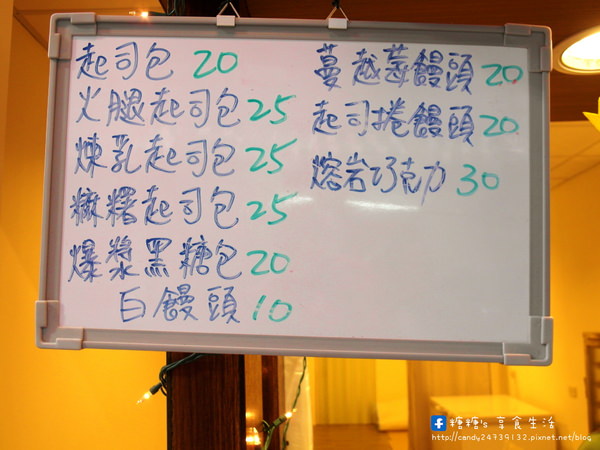 起司包 20
火腿起司包 25
煉乳起司包 25
麻糬起司包 25
爆漿黑糖包 20
白饅頭 10
蔓越莓饅頭 20
起司捲饅頭 20
熔岩巧克力 30
糖糖's 享食生活
http://candy24739132.pixnet.net/blog